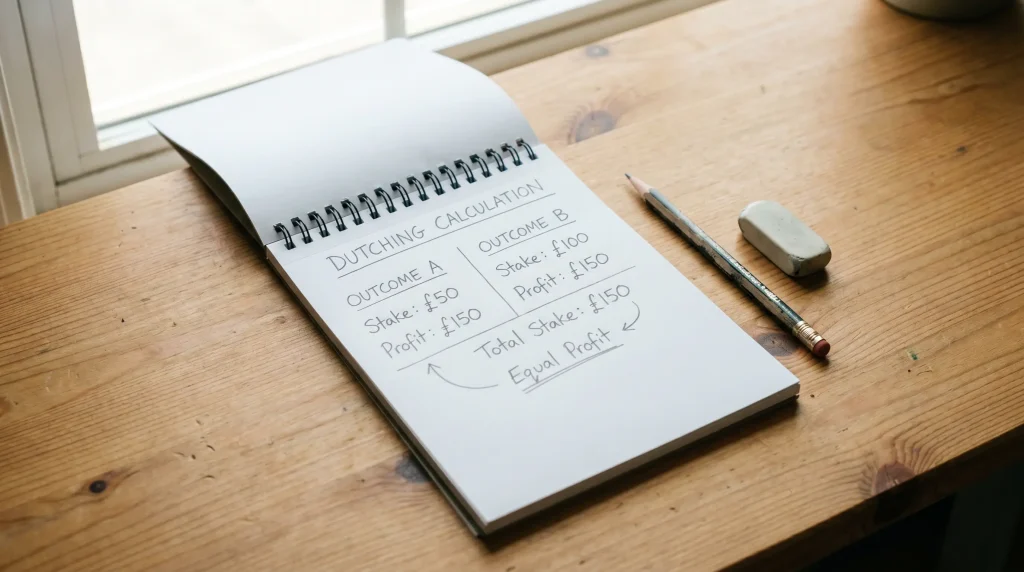 DUTCHING CALCULATION
OUTCOME A
Stake: £50
Profit: £150
OUTCOME B
Stake: £100
Profit: £150
Total Stake: £150
Equal Profit